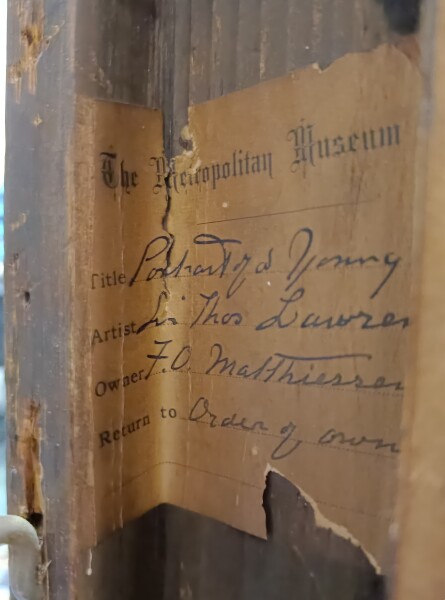 The Metropolitan Museum
Title Portrait of a Young
Artist Sir Thos Lawren
Owner F.O. Matthiessen
Return to Order of own